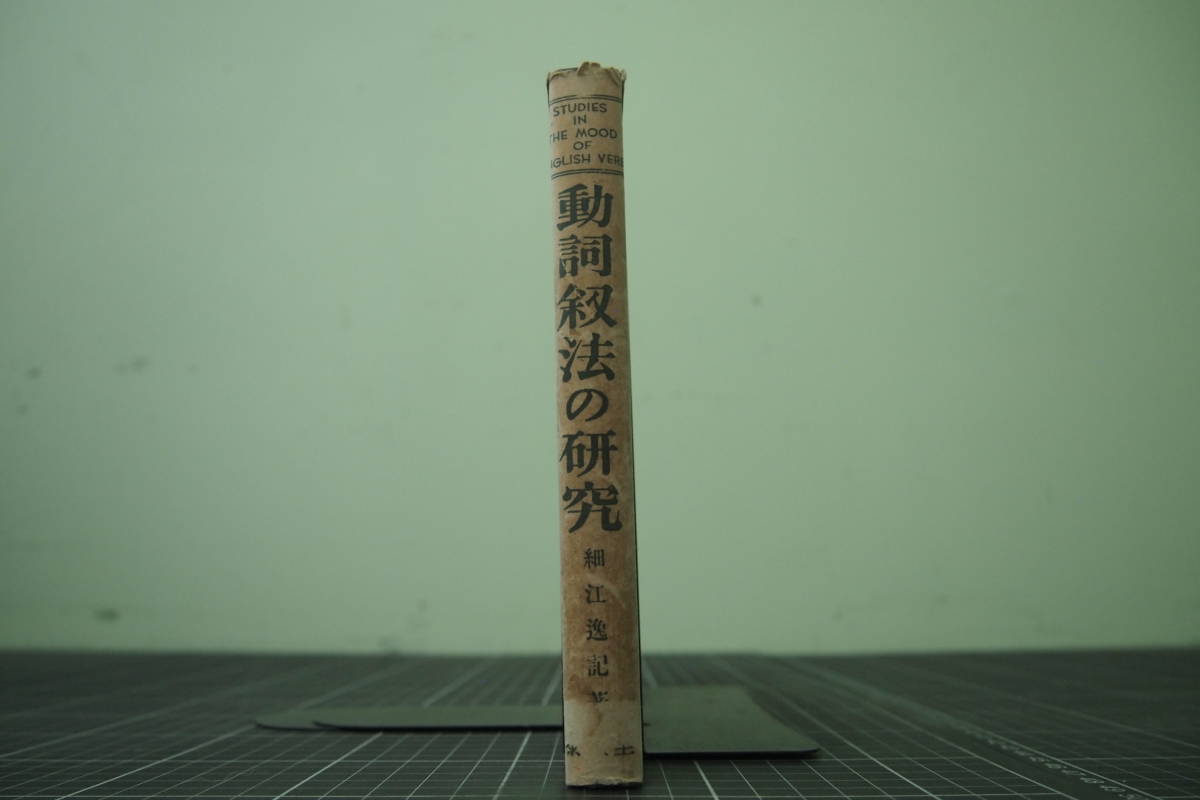 STUDIES
IN
THE MOOD
OF
ENGLISH VERB
動詞叙法の研究
細江逸記